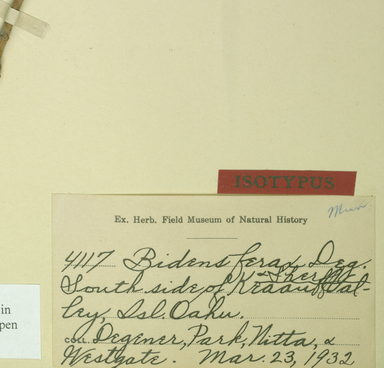 ISOTYPUS
Ex. Herb. Field Museum of Natural History
4117 Bidens ferax Deg.
& Sherff
South side of Keaau Val-
ley, Isl. Oahu.
COLL. Degener, Park, Nitta, &
Westgate. Mar. 23, 1932
in
pen